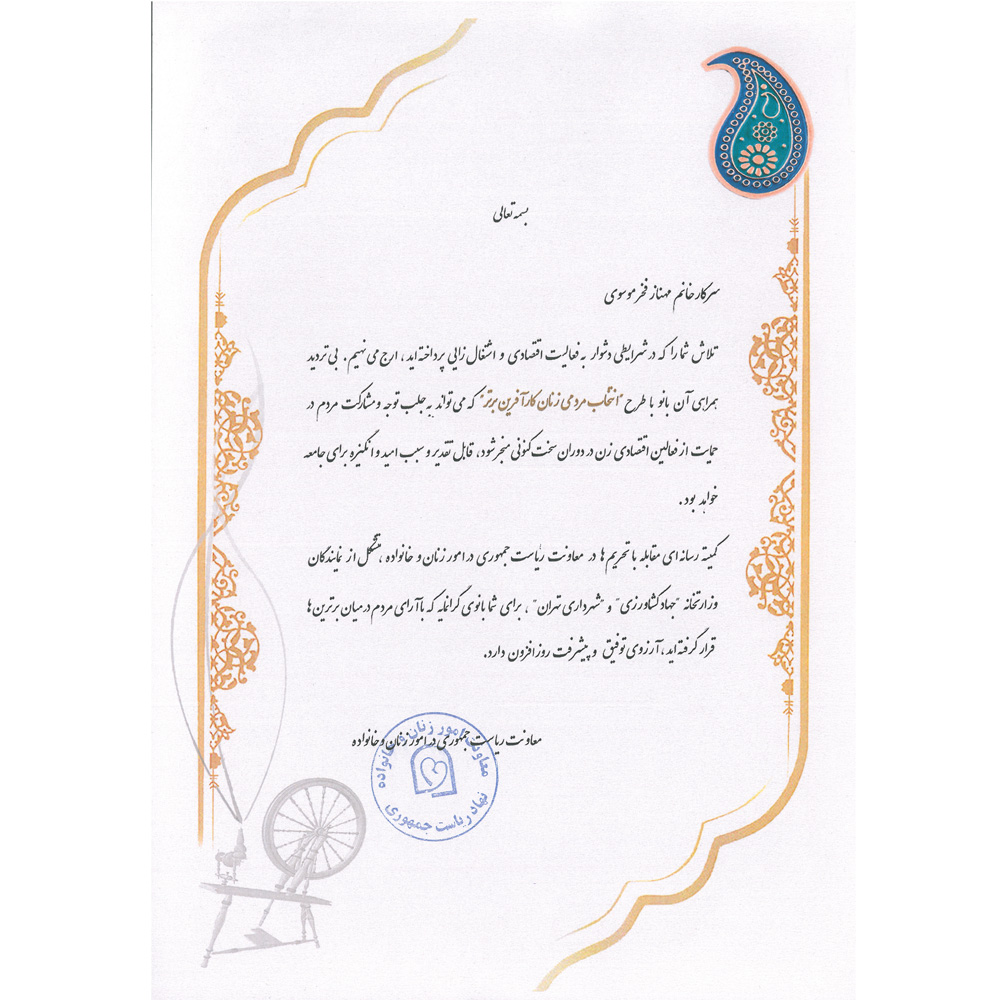 بسمه تعالی
سرکار خانم مهناز فخر موسوی
تلاش شما را که در شرایطی دشوار به فعالیت اقتصادی و اشتغال زایی پرداخته اید، ارج می نهیم. بی تردید
همراهی آن بانو با طرح "انتخاب مردمی زنان کارآفرین برتر" که می تواند به جلب توجه و مشارکت مردم در
حمایت از فعالین اقتصادی زن در دوران سخت کنونی منجر شود، قابل تقدیر و سبب امید و انگیزه برای جامعه
خواهد بود.
کمیته رسانه ای مقابله با تحریم ها در معاونت ریاست جمهوری در امور زنان و خانواده، متشکل از نمایندگان
وزارتخانه "جهاد کشاورزی" و "شهرداری تهران"، برای شما بانوی گرانمایه که با آرای مردم در میان برترین ها
قرار گرفته اید، آرزوی توفیق و پیشرفت روز افزون دارد.
معاونت ریاست جمهوری در امور زنان و خانواده
معاونت امور زنان و خانواده
نهاد ریاست جمهوری